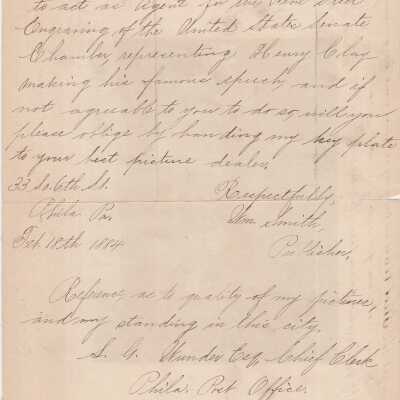 to act as Agent for the new Steel
Engraving of the United States Senate
Chamber representing Henry Clay
making his famous speech, and if
not agreeable to you to do so will you
please oblige by handing my key plate
to your best picture dealer.
33 So. 6th St. Respectfully,
Phila Pa. Wm Smith,
Feb. 18th 1884 Publisher,
Reference as to quality of my pictures,
and my standing in this city.
S. G. Wunder Esq. Chief Clerk
Phila. Post Office.